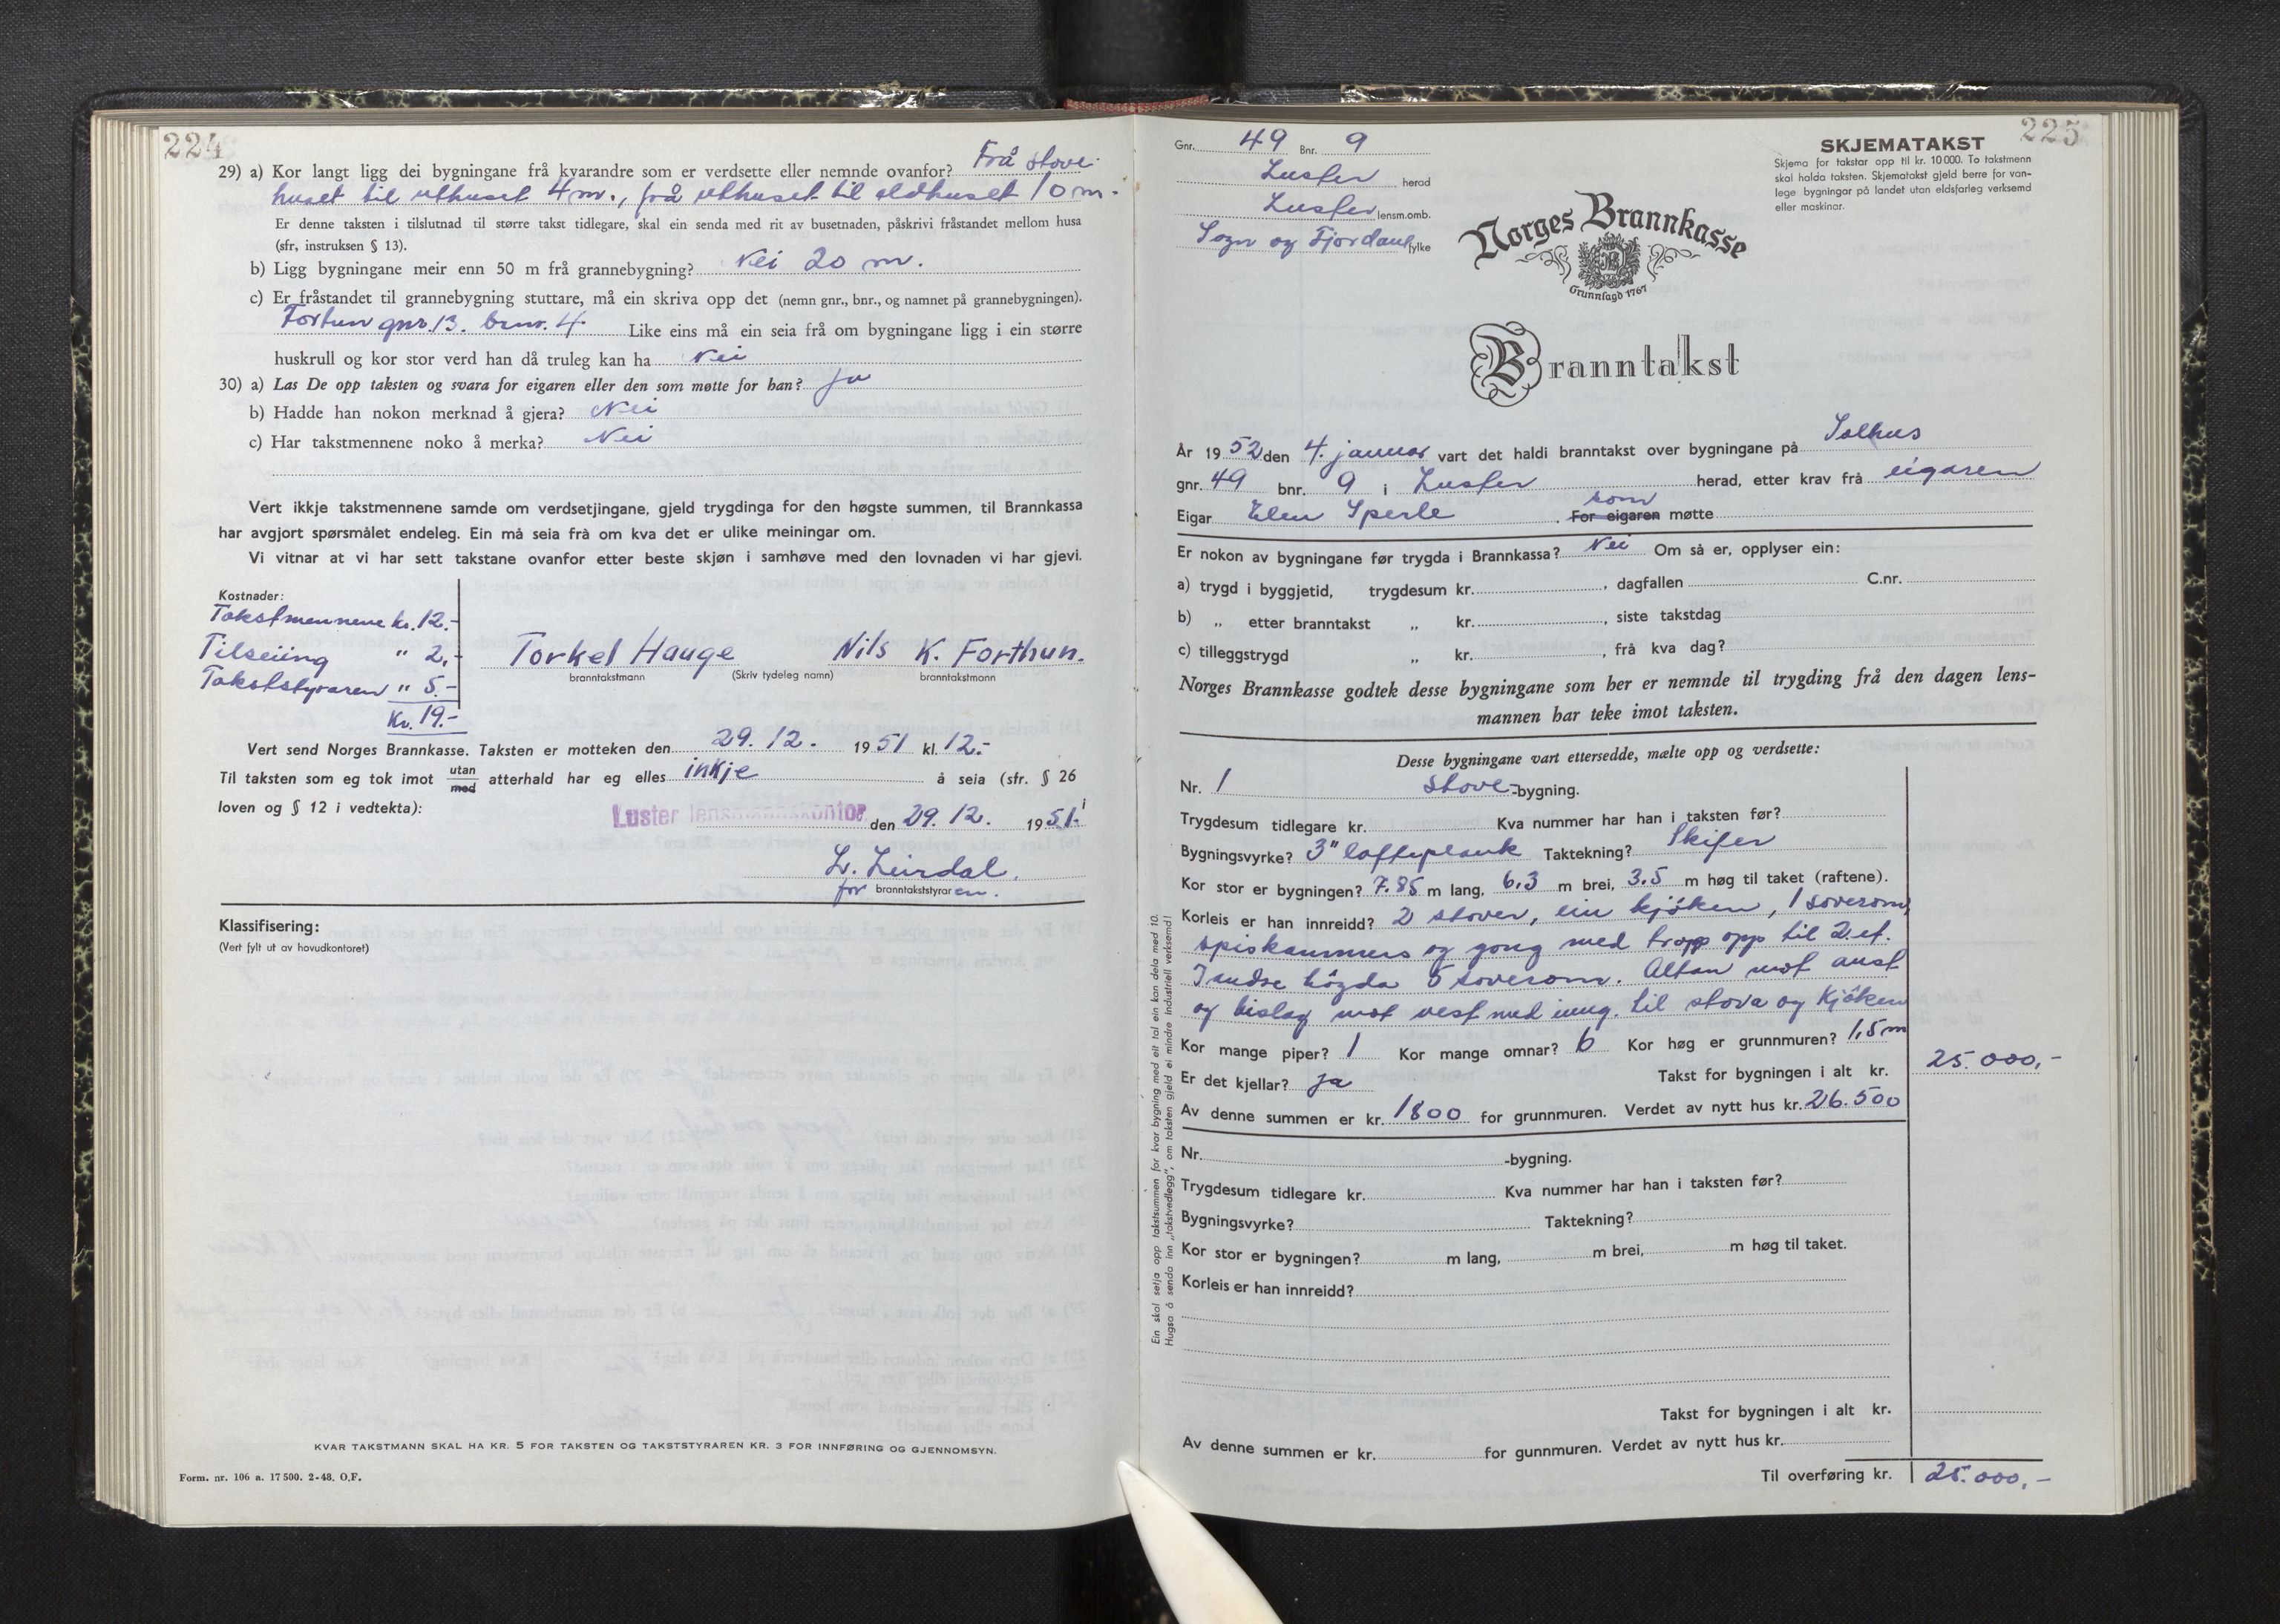 224
29) a) Kor langt ligg dei bygningane frå kvarandre som er verdsette eller nemnde ovanfor? Frå stove-
huset til uthuset 4 m., frå uthuset til eldhuset 10 m.
Er denne taksten i tilslutnad til større takst tidlegare, skal ein senda med rit av busetnaden, påskrivi fråstandet mellom husa
(sfr, instruksen § 13).
b) Ligg bygningane meir enn 50 m frå grannebygning? Nei 20 m.
c) Er fråstandet til grannebygning stuttare, må ein skriva opp det (nemn gnr., bnr., og namnet på grannebygningen).
Fortun gnr. 13. bnr. 4. Like eins må ein seia frå om bygningane ligg i ein større
huskrull og kor stor verd han då truleg kan ha Nei
30) a) Las De opp taksten og svara for eigaren eller den som møtte for han? Ja
b) Hadde han nokon merknad å gjera? Nei
c) Har takstmennene noko å merka? Nei
Vert ikkje takstmennene samde om verdsetjingane, gjeld trygdinga for den høgste summen, til Brannkassa
har avgjort spørsmålet endeleg. Ein må seia frå om kva det er ulike meiningar om.
Vi vitnar at vi har sett takstane ovanfor etter beste skjøn i samhøve med den lovnaden vi har gjevi.
Kostnader:
Takstmennene kr. 12.-
Tilseiing " 2,-
Takststyraren " 5.-
Kr. 19.-
Torkel Hauge Nils K. Forthun.
branntakstmann (Skriv tydeleg namn) branntakstmann
Vert send Norges Brannkasse. Taksten er motteken den 29. 12. 1951 kl. 12.-
Til taksten som eg tok imot utan
med atterhald har eg elles inkje å seia (sfr. § 26
loven og § 12 i vedtekta):
Luster lensmannskontor den 29. 12. 1951.
L. Leirdal.
for branntakststyraren.
Klassifisering:
(Vert fylt ut av hovudkontoret)
KVAR TAKSTMANN SKAL HA KR. 5 FOR TAKSTEN OG TAKSTSTYRAREN KR. 3 FOR INNFØRING OG GJENNOMSYN.
Form. nr. 106 a. 17 500. 2-48. O.F.
225
Gnr. 49 Bnr. 9
Luster herad
Luster lensm.omb.
Sogn og Fjordane fylke
SKJEMATAKST
Skjema for takstar opp til kr. 10 000. To takstmenn
skal halda taksten. Skjematakst gjeld berre for van-
lege bygningar på landet utan eldsfarleg verksemd
eller maskinar.
Norges Brannkasse
Grunnlagd 1767
Branntakst
År 1952 den 4. januar vart det haldi branntakst over bygningane på Solhus
gnr. 49 bnr. 9 i Luster herad, etter krav frå eigaren
Eigar Elen Sperle . For eigaren som møtte
Er nokon av bygningane før trygda i Brannkassa? Nei Om så er, opplyser ein:
a) trygd i byggjetid, trygdesum kr. , dagfallen C.nr.
b) „ etter branntakst „ kr. , siste takstdag
c) tilleggstrygd „ kr. , frå kva dag?
Norges Brannkasse godtek desse bygningane som her er nemnde til trygding frå den dagen lens-
mannen har teke imot taksten.
Desse bygningane vart ettersedde, mælte opp og verdsette:
Nr. 1 stove-bygning.
Trygdesum tidlegare kr. Kva nummer har han i taksten før?
Bygningsvyrke? 3" lafteplank Taktekning? Skifer
Kor stor er bygningen? 7.85 m lang, 6.3 m brei, 3.5 m høg til taket (raftene).
Korleis er han innreidd? 2 stover, ein kjøken, 1 soverom,
spiskammers og gong med tropp opp til 2. et.
I andre høgda 5 soverom. Altan mot aust
og bislag mot vest med inng. til stova og kjøken
Kor mange piper? 1 Kor mange omnar? 6 Kor høg er grunnmuren? 1,5 m
Er det kjellar? Ja Takst for bygningen i alt kr. 25.000,-
Av denne summen er kr. 1800 for grunnmuren. Verdet av nytt hus kr. 26.500
Nr. -bygning.
Trygdesum tidlegare kr. Kva nummer har han i taksten før?
Bygningsvyrke? Taktekning?
Kor stor er bygningen? m lang, m brei, m høg til taket.
Korleis er han innreidd?
Takst for bygningen i alt kr.
Av denne summen er kr. for gunnmuren. Verdet av nytt hus kr.
Til overføring kr. 25.000,-
Ein skal setja opp takstsummen for kvar bygning med eit tal ein kan dela med 10.
Hugsa å senda inn „takstvedlegg", om taksten gjeld ei mindre industriell verksemd!